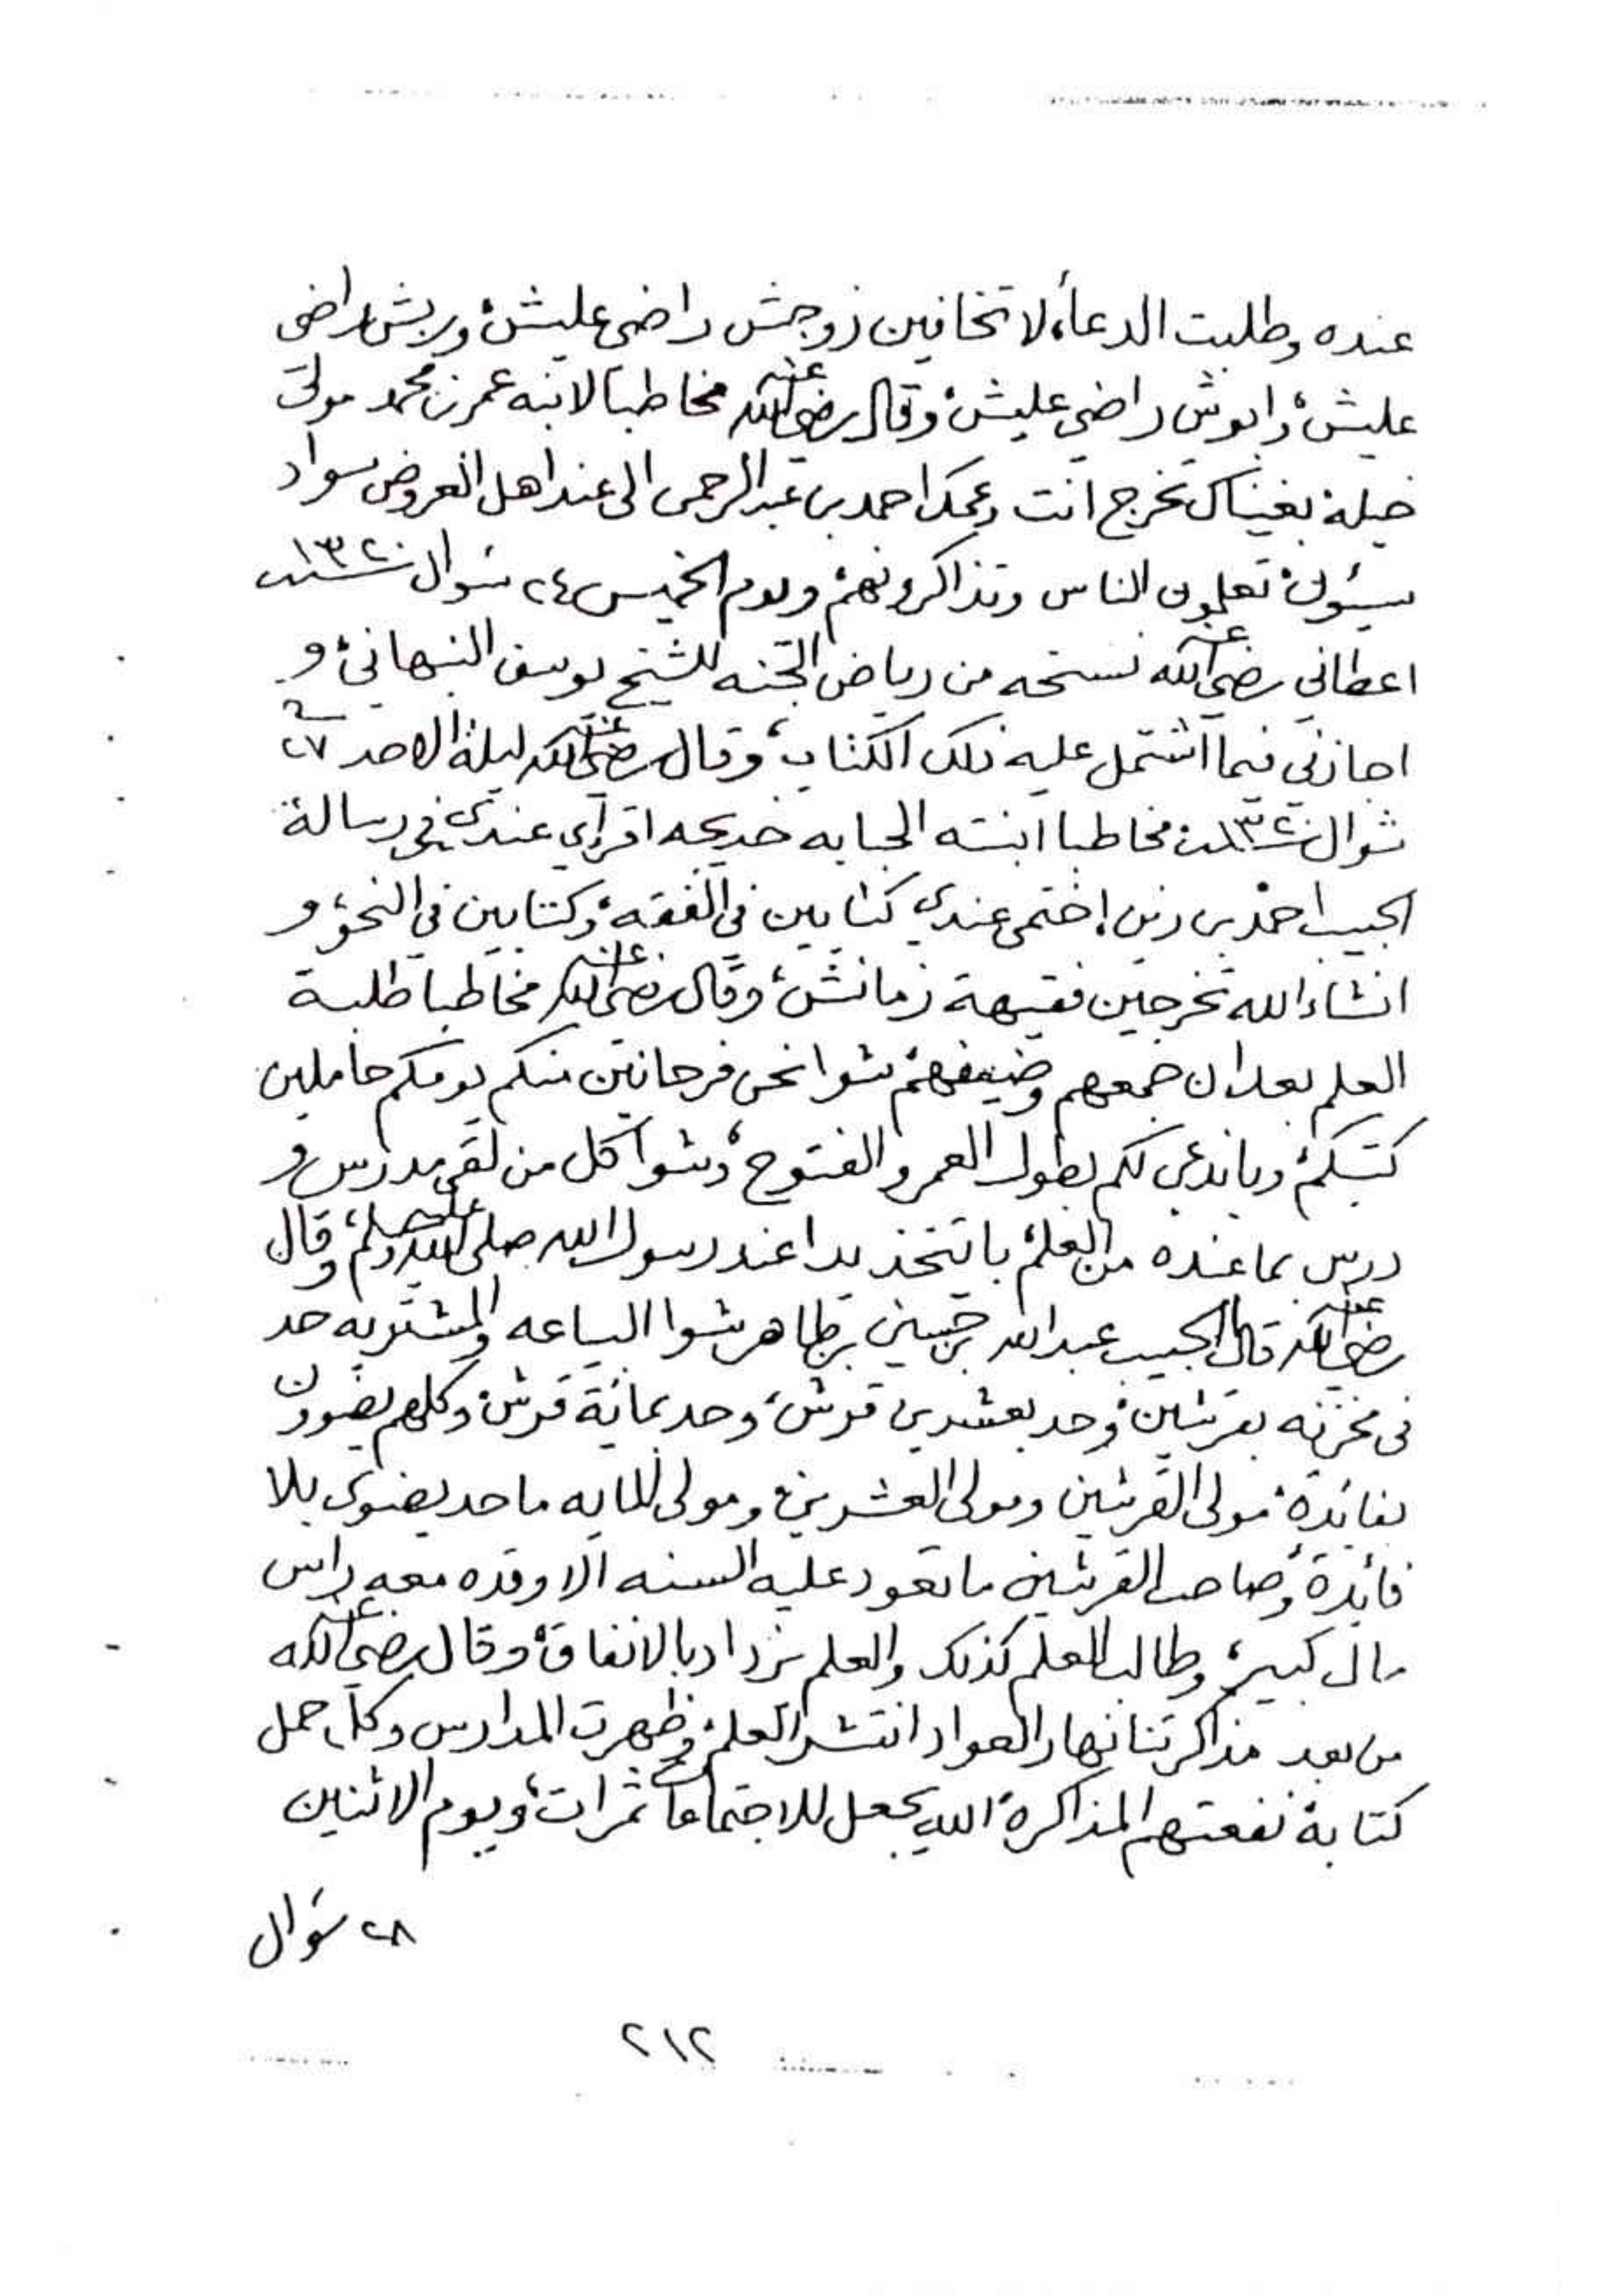 عنده وطلبت الدعاء، لا تخافين زوجش راضي عليش، وربش راضي
عليش، وابوش راضي عليش، وقال رضي الله عنه مخاطبا لابنه عمر بن محمد مولى
خيلة بغيناك تخرج انت وعمك احمد بن عبدالرحمن الى عند اهل العروض سواد
سيئون تعلمون الناس وتذاكرونهم، ويوم الخميس ٢٤ شوال سنة ١٣٢٠
اعطاني رضي الله عنه نسخه من رياض الجنه للشيخ يوسف النبهاني، و
اجازني فيما اشتمل عليه ذلك الكتاب، وقال رضي الله عنه ليلة الاحد ٢٧
شوال سنة ١٣٢٠ مخاطبا ابنته الحبابه خديجه اقرأي عندي في رسالة
الحبيب احمد بن زين، اختمي عندي كتابين في الفقه، وكتابين في النحو، و
انشاء الله تخرجين فقيهة زمانش، وقال رضي الله عنه مخاطبا طلبة
العلم بعد ان جمعهم وضيفهم، شوا نحن فرحانين منكم يومكم حاملين
كتبكم، وباندعي لكم بطول العمر والفتوح، وشوا كل من لقي مدرس و
درس بما عنده من العلم، باتتخذ يدا عند رسول الله صلى الله عليه وسلم، وقال
رضي الله عنه قال الحبيب عبدالله بن حسين بن طاهر شوا البياعه والمشتريه حد
في مخزنه بقرشين، وحد بعشرين قرش، وحد بمائة قرش، وكلهم يضوون
بفائدة، مولى القرشين ومولى العشرين، ومولى المايه ماحد يضوي بلا
فائدة، وصاحب القرشين ما تعود عليه السنه الا وقده معه راس
مال كبير، وطالب العلم كذلك والعلم يزداد بالانفاق، وقال رضي الله عنه
من بعد مذاكرتنا نهار العواد انتشر العلم، وظهرت المدارس وكلا حمل
كتابه، نفعتهم المذاكرة، الله يجعل للاجتماعات ثمرات، ويوم الاثنين
٢٨ شوال
٢١٢